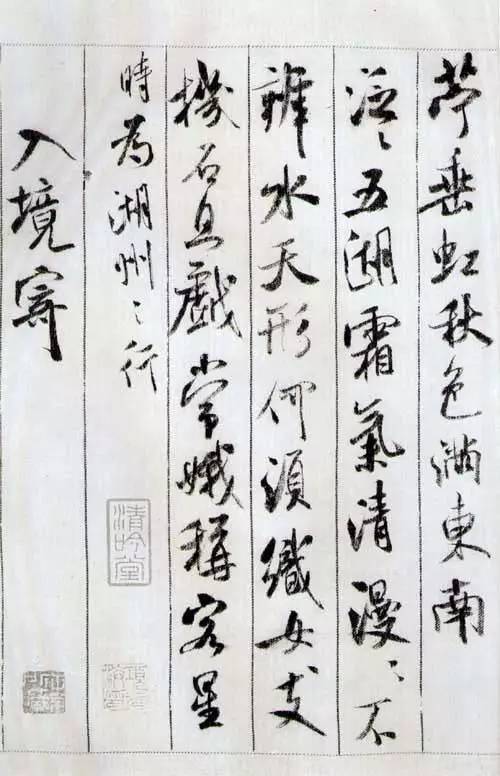 苧垂虹秋色滿東南
泛〻五湖霜氣清漫〻不
辨水天形何須織女支
機石且戲常娥稱客星
時為湖州之行
入境寄
清吟堂